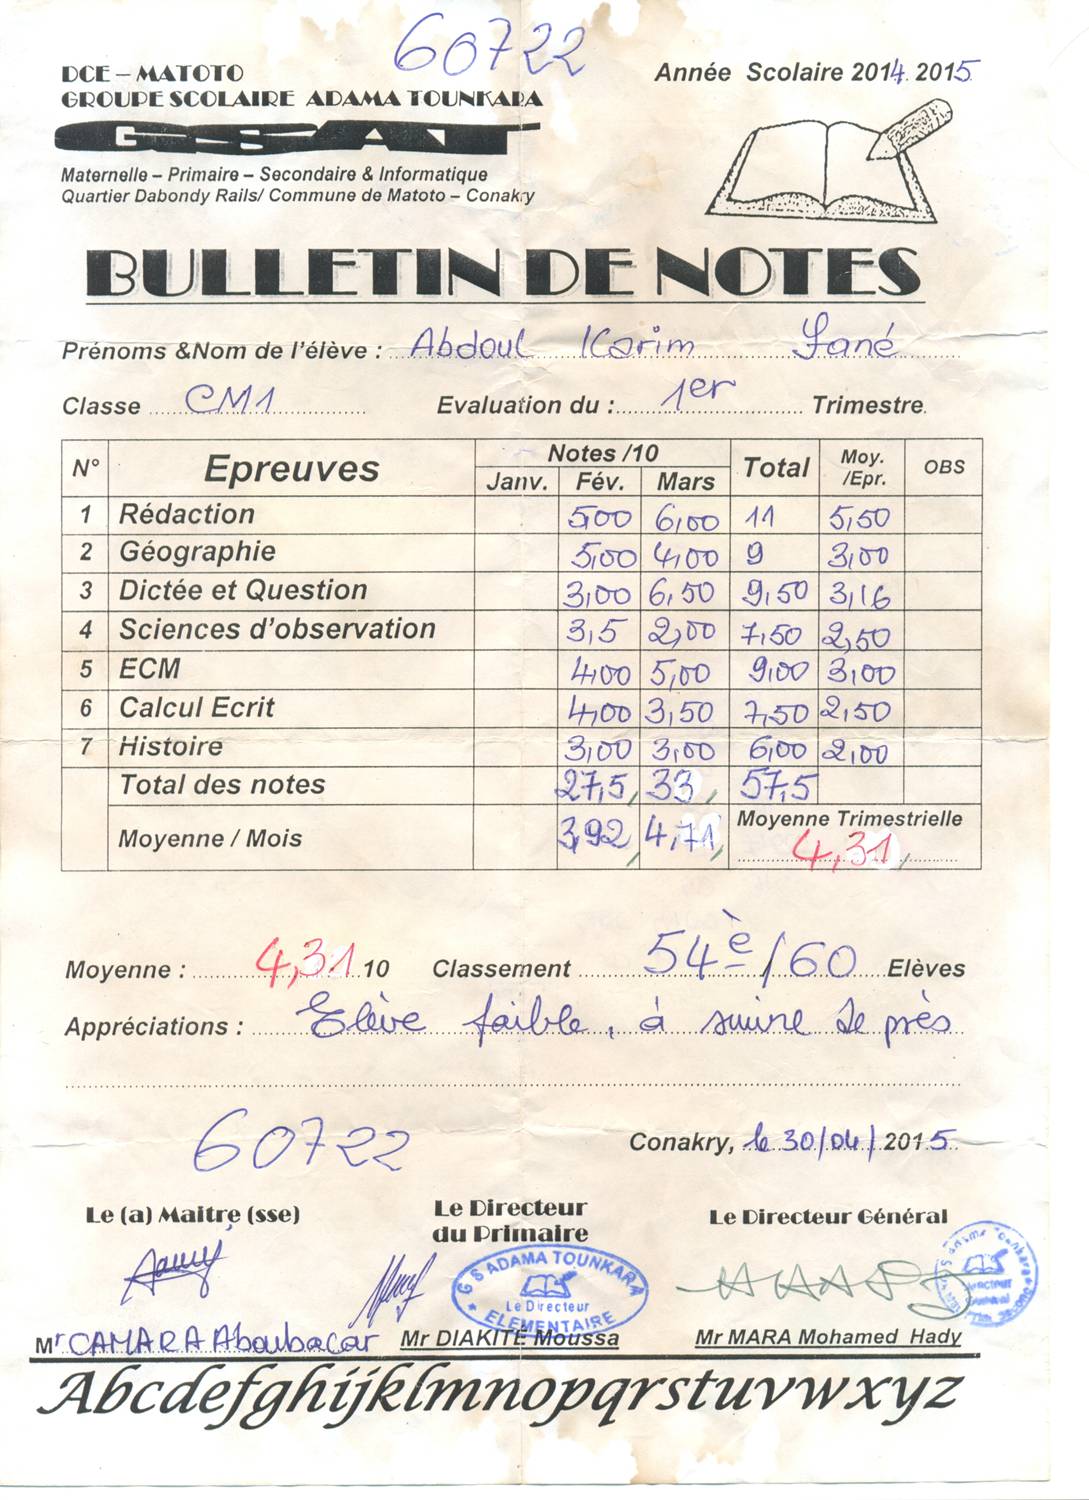 60722
DCE – MATOTO
Année Scolaire 2014 2015
GROUPE SCOLAIRE ADAMA TOUNKARA
GSAT
Maternelle – Primaire – Secondaire & Informatique
Quartier Dabondy Rails/ Commune de Matoto – Conakry
BULLETIN DE NOTES
Prénoms &Nom de l'élève : Abdoul Karim Sané
Classe CM1 Evaluation du : 1er Trimestre
N° Epreuves Notes /10 Total Moy. /Epr. OBS
Janv. Fév. Mars
1 Rédaction 5,00 6,00 11 5,50
2 Géographie 5,00 4,00 9 3,00
3 Dictée et Question 3,00 6,50 9,50 3,16
4 Sciences d'observation 3,5 2,00 7,50 2,50
5 ECM 4,00 5,00 9,00 3,00
6 Calcul Ecrit 4,00 3,50 7,50 2,50
7 Histoire 3,00 3,00 6,00 2,00
Total des notes 27,5 33 57,5
Moyenne / Mois 3,92 4,71 Moyenne Trimestrielle
4,31
Moyenne : 4,31 10 Classement 54è/60 Elèves
Appréciations : Elève faible, à suivre de près
60722
Conakry, le 30/04/2015
Le (a) Maitre (sse) Le Directeur du Primaire Le Directeur Général
G S ADAMA TOUNKARA
Le Directeur
ELEMENTAIRE
Mr CAMARA Aboubacar Mr DIAKITÉ Moussa Mr MARA Mohamed Hady
Abcdefghijklmnopqrstuvwxyz